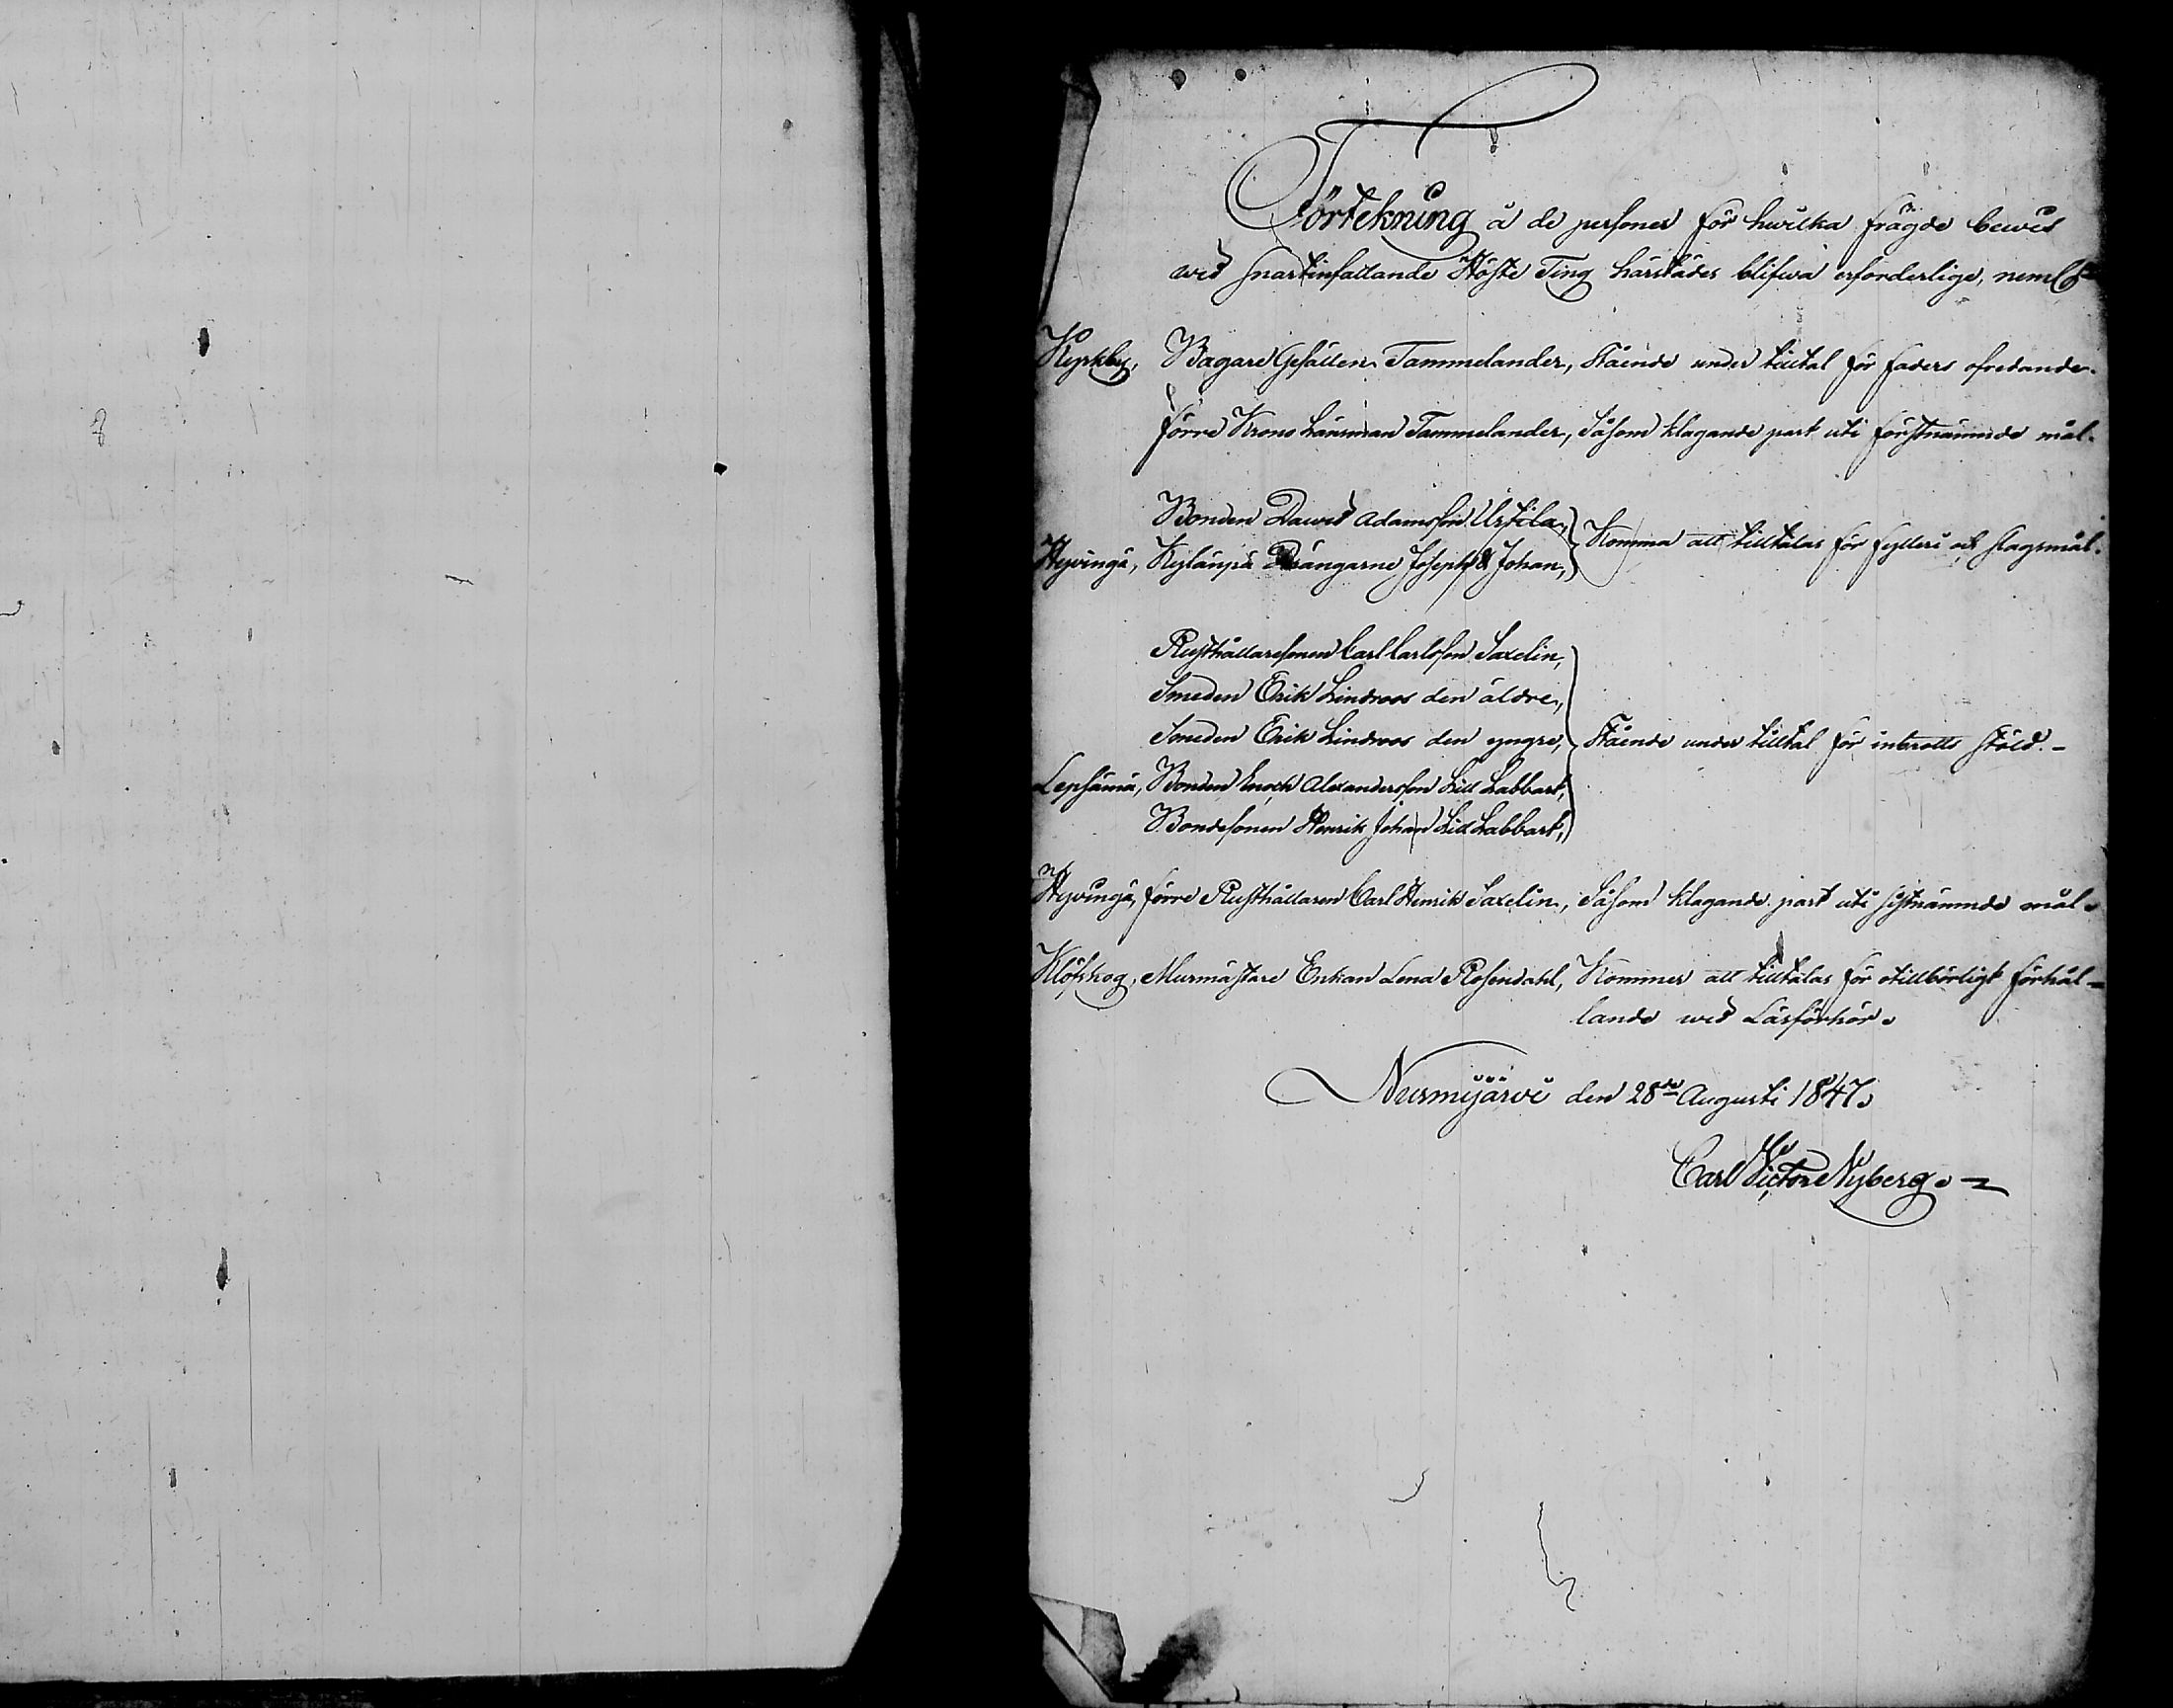 Förtekning å de personer för hwilka frägde bewis
wid snartinfallande Höste Ting härstädes blifwa erforderlige, neml:
Kyrkby, Bagare Gesällen Tammelander, Stående under tilltal för faders ofredande.
förre Krono Länsman Tammelander, Såsom klagande part uti förstnämnde mål.
Bonden David Adamsson Urtila,
Hyvingä, Kylänpä Drängarne Joseph & Johan, Komma att tilltalas för fylleri och slagsmål.
Rusthållaresonen Carl Carlsson Saxelin,
Smeden Erik Lindroos den äldre,
Smeden Erik Lindroos den yngre, Stående under tilltal för inbrotts stöld.-
Lepsämä, Bonden Enoch Alexandersson Lill Labbart,
Bondesonen Henrik Johan Lill Labbart,
Hyvingä, förre Rusthållaren Carl Henrik Saxelin, Såsom klagande part uti sistnämnde mål.
Klöfskog, Murmästare Enkan Lena Rosendahl, Kommer att tilltalas för otillbörligt förhål-
lande wid Läsförhör.
Nurmijärvi den 28de Augusti 1847.
Carl Victor Nyberg.